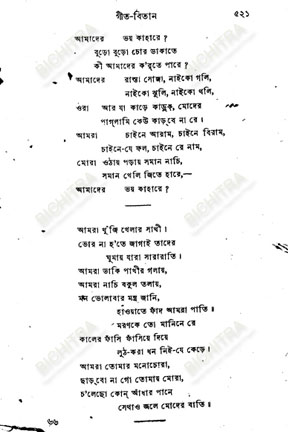 গীত-বিতান ৫২১
আমাদের ভয় কাহারে ?
বুড়ো বুড়ো চোর ডাকাতে
কী আমাদের ক'রতে পারে ?
আমাদের রাস্তা সোজা, নাইকো গলি,
নাইকো ঝুলি, নাইকো থলি,
ওরা আর যা কাড়ে কাড়ুক, মোদের
পাগ্‌লামি কেউ কাড়্‌বে না রে ।
আমরা চাইনে আরাম, চাইনে বিরাম,
চাইনে-যে ফল, চাইনে রে নাম,
মোরা ওঠায় পড়ায় সমান নাচি,
সমান খেলি জিতে হারে,—
আমাদের ভয় কাহারে ?
আমরা খুঁজি খেলার সাথী ।
ভোর না হ'তে জাগাই তাদের
ঘুমায় যারা সারারাতি ।
আমরা ডাকি পাখীর গলায়,
আমরা নাচি বকুল তলায়,
মন ভোলাবার মন্ত্র জানি,
হাওয়াতে ফাঁদ আমরা পাতি ॥
মরণকে তো মানিনে রে
কালের ফাঁসি ফাঁসিয়ে দিয়ে
লুঠ-করা ধন নিই-যে কেড়ে ।
আমরা তোমার মনোচোরা,
ছাড়্‌বো না গো তোমায় মোরা,
চ'লেছো কোন্ আঁধার পানে
সেথাও জ্বলে মোদের বাতি ॥
৬৬
BICHITRA